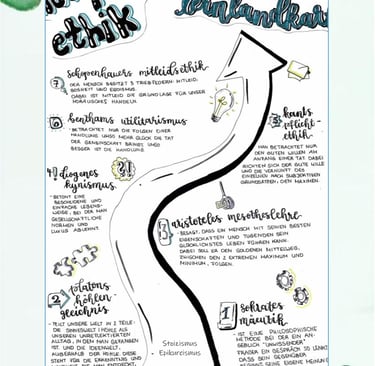 ethik
Lernlandkarte
7 schopenhauers mitleidsethik
DER MENSCH BESITZT 3 TRIEBFEDERN: MITLEID,
BOSHEIT UND EGOISMUS.
DABEI IST MITLEID DIE GRUNDLAGE FÜR UNSER
MORALISCHES HANDELN
6 benthams utilitarismus
BETRACHTET NUR DIE FOLGEN EINER
HANDLUNG UND JE MEHR GLÜCK DIE TAT
DER GEMEINSCHAFT BRINGT, UMSO
BESSER IST DIE HANDLUNG
5 kants
pflicht-
ethik
MAN BETRACHTET NUR
DEN GUTEN WILLEN AM
ANFANG EINER TAT. DABEI
RICHTET SICH DER GUTE WILLE
UND DIE VERNUNFT DES
EINZELNEN NACH SUBJEKTIVEN
GRUNDSÄTZEN, DEN MAXIMEN.
4 diogenes
kynismus
BETONT EINE
BESCHEIDENE UND
EINFACHE LEBENS-
WEISE, BEI DER MAN
GESELLSCHAFTLICHE
NORMEN UND
LUXUS ABLEHNT
3 aristoteles mesoteslehre
BESAGT, DASS EIN MENSCH MIT SEINEN BESTEN
EIGENSCHAFTEN UND TUGENDEN SEIN
GLÜCKLICHSTES LEBEN FÜHREN KANN.
DABEI SOLL ER DEN GOLDENEN MITTELWEG,
ZWISCHEN DEN 2 EXTREMEN MAXIMUM UND
MINIMUM, FOLGEN.
2 platons
höhlen-
gleichnis
TEILT UNSERE WELT IN 2 TEILE:
DIE SINNENWELT / HÖHLE ALS
UNSEREN UNREFLEKTIERTEN
ALLTAG, IN DEM MAN GEFANGEN
IST UND DIE IDEENWELT,
AUßERHALB DER HÖHLE. DIESE
STEHT FÜR DIE ERKENNTNIS UND
1 sokrates
mäeutik
IST EINE PHILOSOPHISCHE
METHODE BEI DER EIN AN-
GEBLICH "UNWISSENDER"
PARTNER EIN GESPRÄCH SO LENKT,
DASS SEIN GEGENÜBER
Stoizismus
Epikureismus